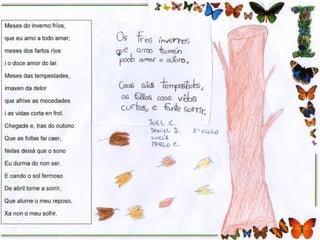 Meses do inverno fríos,
que eu amo a todo amar;
meses dos fartos ríos
i o doce amor do lar.
Meses das tempestades,
imaxen da delor
que afrixe as mocedades
i as vidas corta en frol.
Chegade e, tras do outono
Que as follas fai caer,
Nelas deixá que o sono
Eu durma do non ser.
E cando o sol fermoso
De abril torne a sorrir,
Que alume o meu reposo,
Xa non o meu sofrir.
Os fríos invernos
que amo tamén
podo amar o outono.
Coas súas tempestades,
as follas coas vidas
curtas, e fante sorrir.
JOEL C.
DANIEL D. 2º CICLO
LUCÍA
PABLO C.